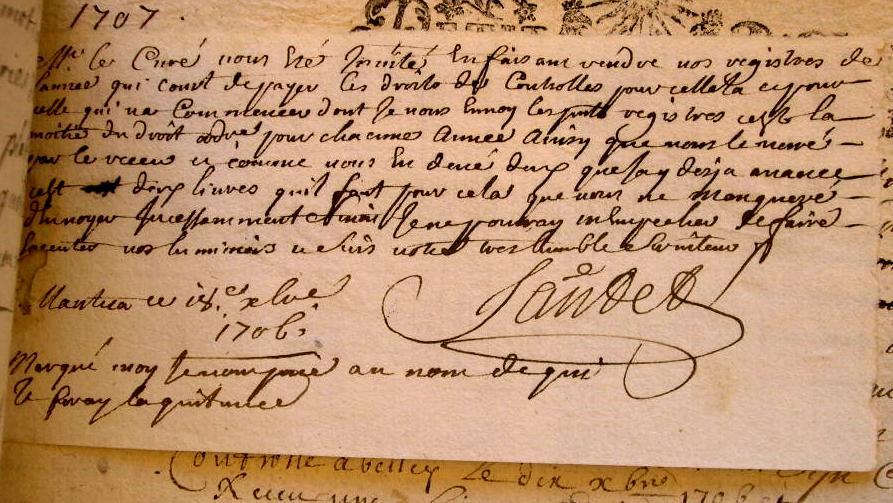 1707
Mr le Curé vous eté Invité En faisant vendre vos registres de
lannee qui court de payer les droits de Controlles pour cellela et pour
celle qui va Commencer dont Je vous Envoy les registres cest la
moitié du droit pour chacune Année Ainsy que vous le verré
par le receu et comme vous En devé deux que Jay desja avancé
cest deux livres quil faut pour cela que vous ne manqueré
dEnvoyer Incessamment Je ne pourray mEmpecher de faire
vos luminiers Je suis votre tres humble serviteur
Nantua ce 18e xbre
1706
Marqué moy au nom de qui
Je feray la quittance
Controllé a belley Le dix xbre